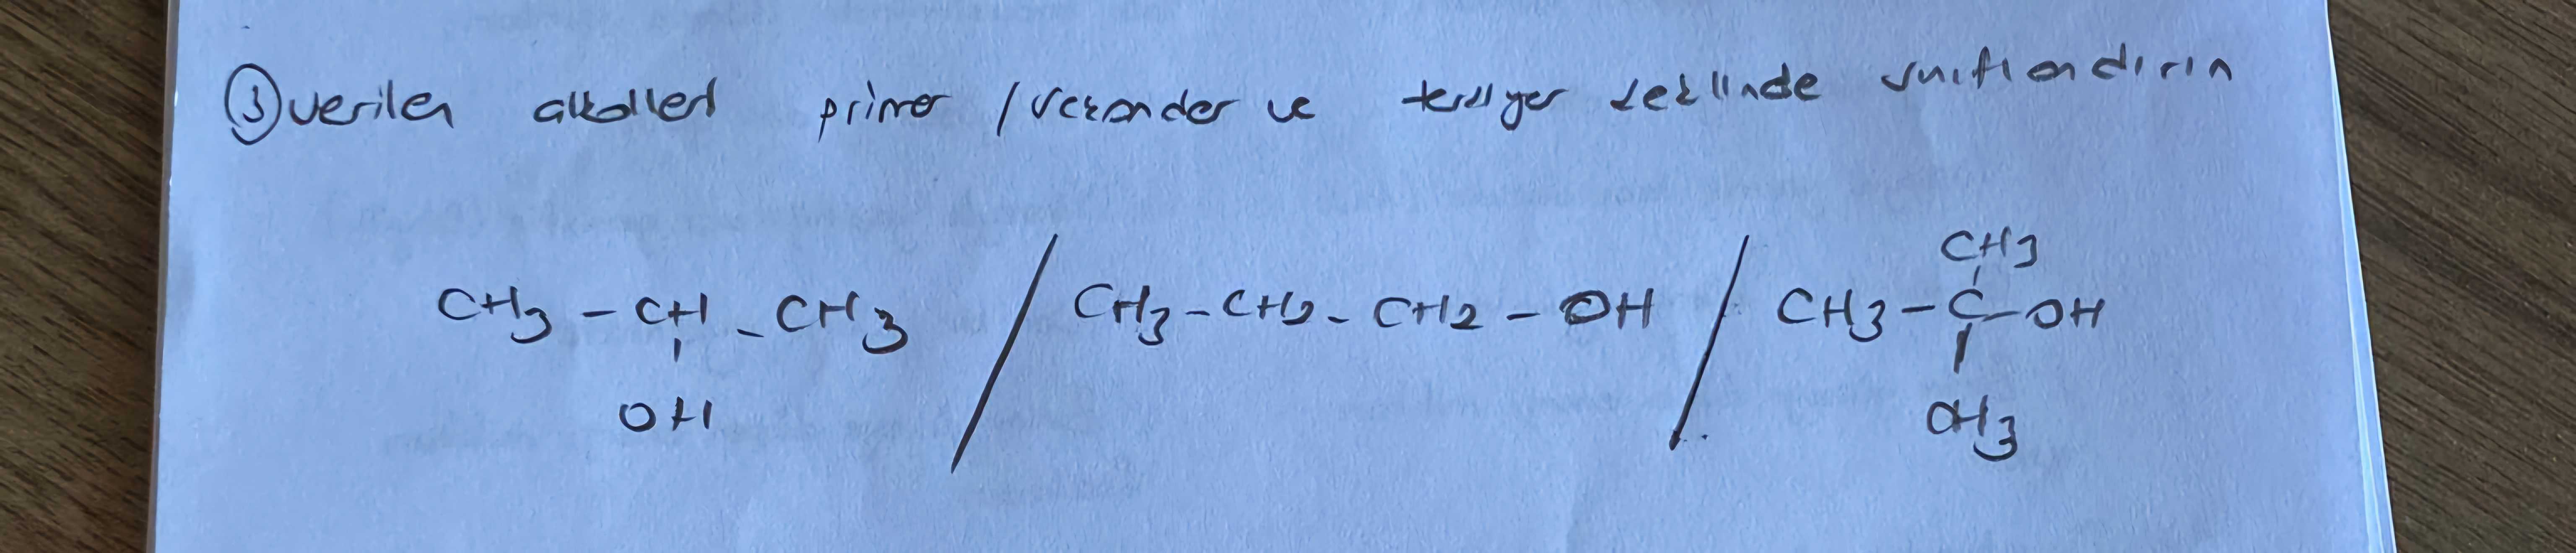 ③ verilen alkolleri primer / sekonder ve tersiyer şeklinde sınıflandırın
CH3
CH3 - CH - CH3 / CH3 - CH2 - CH2 - OH / CH3 - C - OH
OH CH3